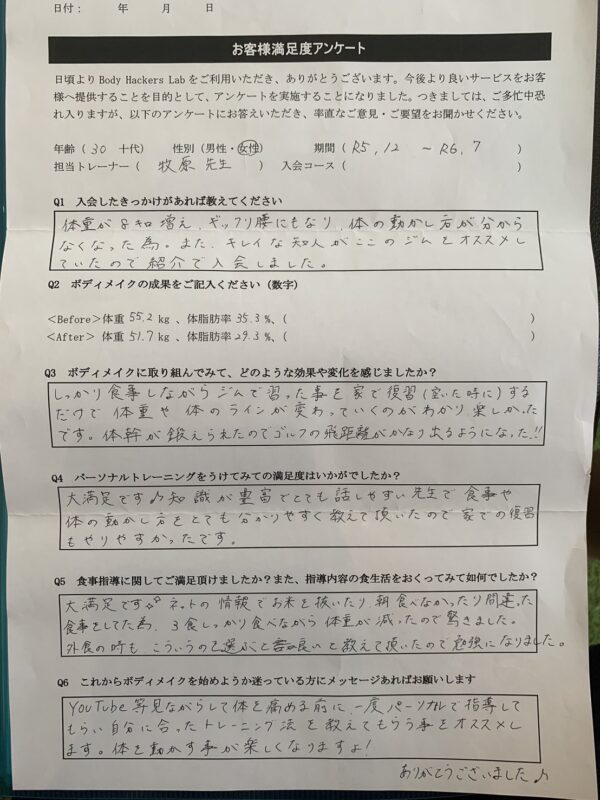 日付： 年 月 日
お客様満足度アンケート
日頃より Body Hackers Lab をご利用いただき、ありがとうございます。今後より良いサービスをお客
様へ提供することを目的として、アンケートを実施することになりました。つきましては、ご多忙中恐
れ入りますが、以下のアンケートにお答えいただき、率直なご意見・ご要望をお聞かせください。
年齢（ 30 十代） 性別（男性・女性） 期間（ R5,12 ～ R6,7 ）
担当トレーナー（ 牧原 先生 ） 入会コース（ ）
Q1 入会したきっかけがあれば教えてください
体重が8キロ増え、ギックリ腰にもなり、体の動かし方が分から
なくなった為。また、キレイな知人がここのジムをオススメし
ていたので紹介で入会しました。
Q2 ボディメイクの成果をご記入ください（数字）
＜Before＞体重 55.2 kg 、体脂肪率 35.3 %、（ ）
＜After＞ 体重 51.7 kg 、体脂肪率 29.3 %、（ ）
Q3 ボディメイクに取り組んでみて、どのような効果や変化を感じましたか？
しっかり食事しながらジムで習った事を家で復習(空いた時に)する
だけで 体重や 体のラインが変わっていくのがわかり楽しかった
です。体幹が鍛えられたのでゴルフの飛距離がかなり出るようになった!!
Q4 パーソナルトレーニングをうけてみての満足度はいかがでしたか？
大満足です♪知識が豊富でとても話しやすい先生で食事や
体の動かし方をとても分かりやすく教えて頂いたので家での復習
もやりやすかったです。
Q5 食事指導に関してご満足頂けましたか？また、指導内容の食生活をおくってみて如何でしたか？
大満足です☆ ネットの情報でお米を抜いたり、朝食べなかったり間違った
食事をしてた為、3食しっかり食べながら体重が減ったので驚きました。
外食の時も こういうのを選ぶと良いと教えて頂いたので勉強になりました。
Q6 これからボディメイクを始めようか迷っている方にメッセージあればお願いします
YouTube等見ながらして体を痛める前に、一度パーソナルで指導して
もらい自分に合ったトレーニング法を教えてもらう事をオススメし
ます。体を動かす事が楽しくなりますよ！
ありがとうございました♪